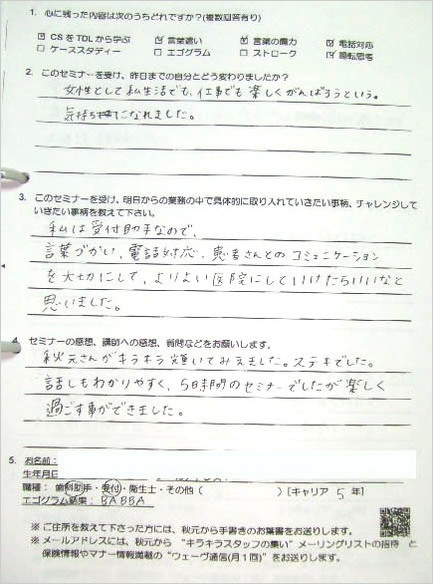 1. 心に残った内容は次のうちどれですか？(複数回答有り)
☑ CSをTDLから学ぶ ☑ 言葉遣い ☑ 言葉の魔力 ☑ 電話対応
□ ケーススタディー □ エゴグラム □ ストローク ☑ 陽転思考
2. このセミナーを受け、昨日までの自分とどう変わりましたか？
女性として私生活でも、仕事でも楽しくがんばろうという。
気持ちになれました。
3. このセミナーを受け、明日からの業務の中で具体的に取り入れていきたい事柄、チャレンジして
いきたい事柄を教えて下さい。
私は受付助手なので、
言葉づかい、電話対応、患者さんとのコミュニケーション
を大切にして、よりよい医院にしていけたらいいなと
思いました。
4. セミナーの感想、講師への感想、質問などをお願いします。
秋元さんがキラキラ輝いてみえました。ステキでした。
話しもわかりやすく、5時間のセミナーでしたが楽しく
過ごす事ができました。
5. お名前：
生年月日
職種： 歯科助手・受付・衛生士・その他（ ）［キャリア 5 年］
エゴグラム結果：BABBA
※ ご住所を教えて下さった方には、秋元から手書きのお葉書をお送りします。
※ メールアドレスには、秋元から “キラキラスタッフの集い” メーリングリストの招待 と
保険情報やマナー情報満載の “ウェーヴ通信(月1回)” をお送りします。